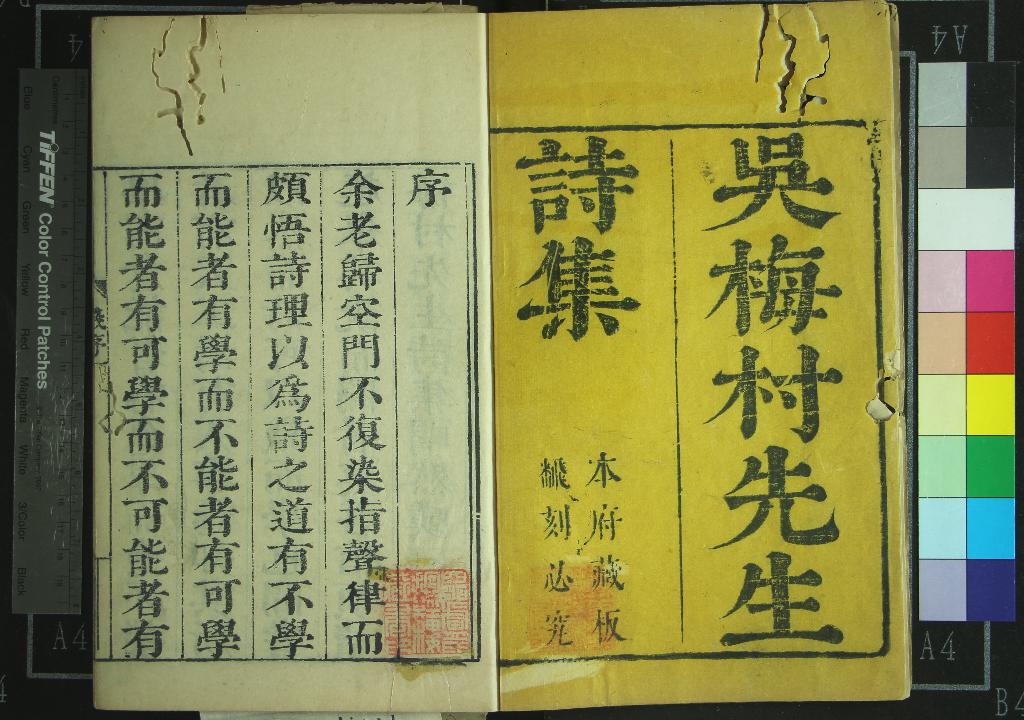 吳梅村先生
詩集
本府藏板
飜刻必究
序
余老歸空門不復染指聲律而
頗悟詩理以爲詩之道有不學
而能者有學而不能者有可學
而能者有可學而不可能者有
TIFFEN Color Control Patches
Blue
Cyan
Green
Yellow
Red
Magenta
White
3/Color
Black
A4
A4
A4